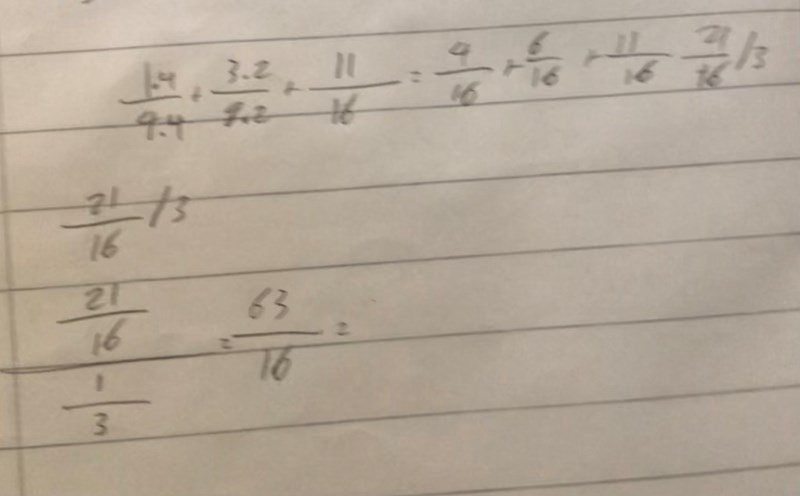 1.4/4.4 + 3.2/8.2 + 11/16 = 4/16 + 6/16 + 11/16 21/16 /3
21/16 /3
21/16 / 1/3 = 63/16 =